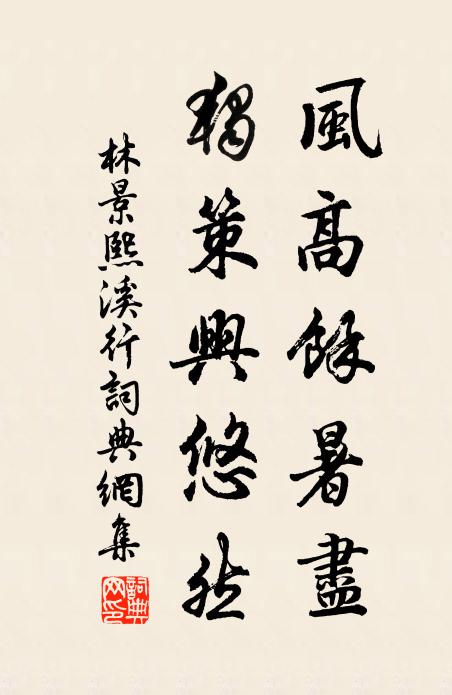 風高餘暑盡
獨策興悠然
林景熙溪行詞典網集
詞典網印